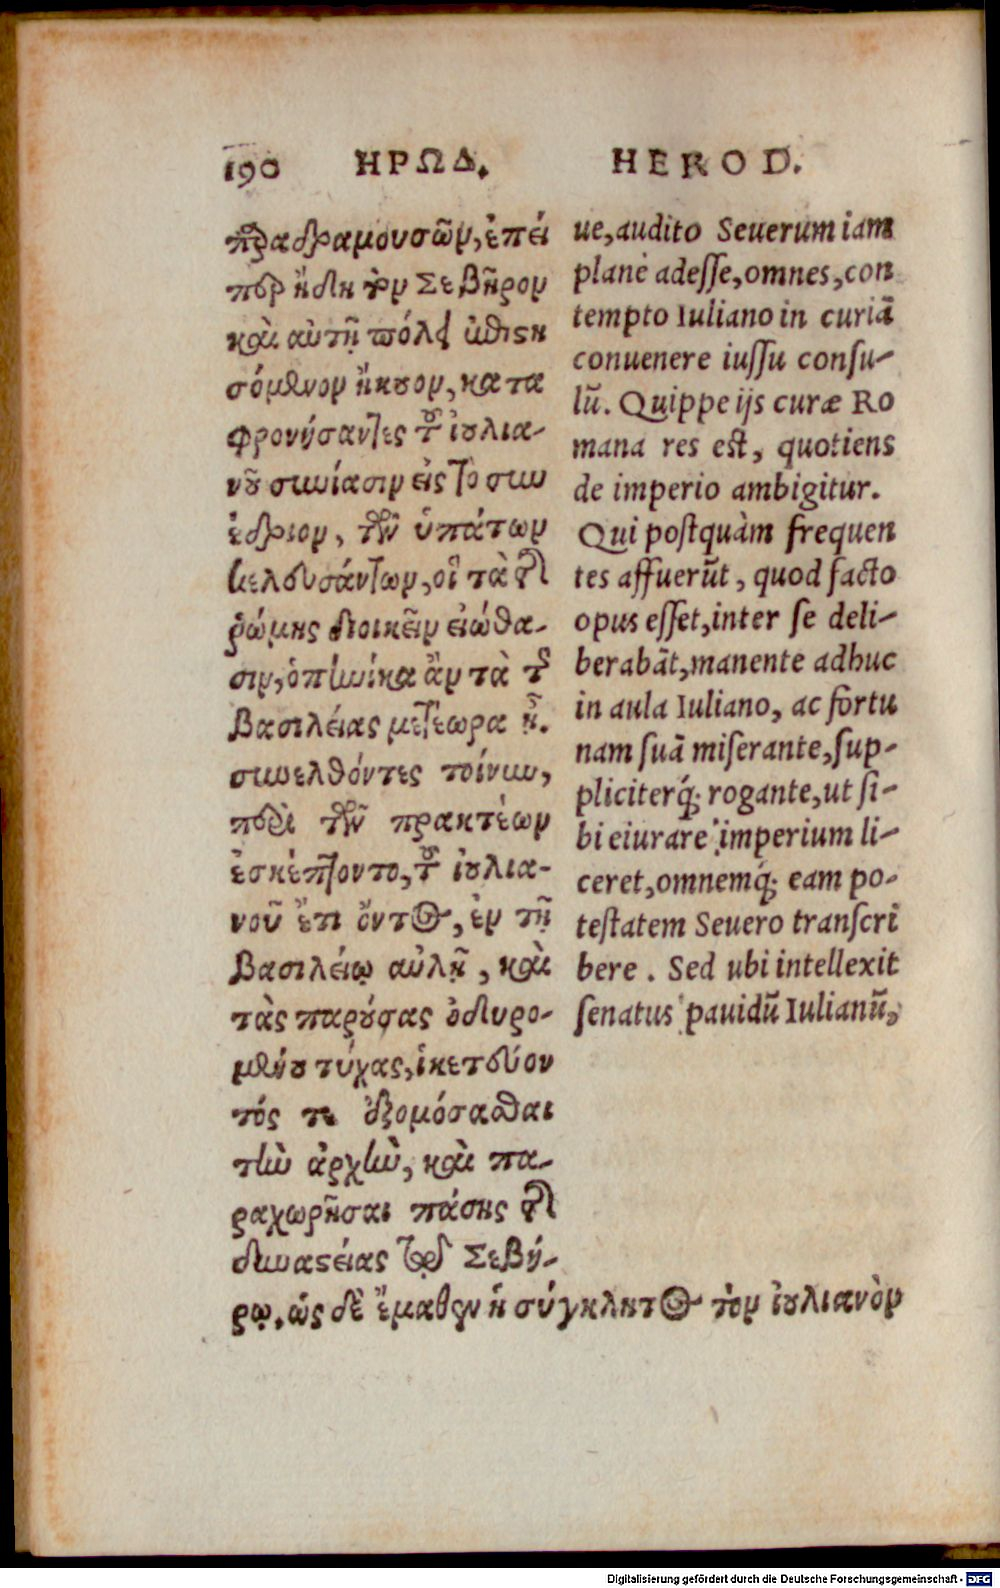 190 ΗΡΩΔ. HEROD.
παραδραμουσῶν, ἐπεί
περ ἤδη τὸν Σεβῆρον
καὶ αὐτῇ πόλει ἐπιστη
σόμενον ἤκουον, κατα
φρονήσαντες τοῦ ἰουλια-
νοῦ συνίασιν εἰς τὸ συν
έδριον, τῶν ὑπάτων
κελευσάντων, οἳ τὰ τῆς
ῥώμης διοικεῖν εἰώθα-
σιν, ὁπηνίκα ἂν τὰ τῆς
βασιλείας μετέωρα ᾖ.
συνελθόντες τοίνυν,
περὶ τῶν πρακτέων
ἐσκέπτοντο, τοῦ ἰουλια-
νοῦ ἔτι ὄντος, ἐν τῇ
βασιλείῳ αὐλῇ, καὶ
τὰς παρούσας ὀδυρο-
μένου τύχας, ἱκετεύον
τός τε ἐξομόσασθαι
τὴν ἀρχὴν, καὶ πα-
ραχωρῆσαι πάσης τῆς
δυναστείας τῷ Σεβή-
ρῳ. ὡς δὲ ἔμαθεν ἡ σύγκλητος τὸν ἰουλιανὸν
ue, audito Seuerum iam
planè adesse, omnes, con
tempto Iuliano in curiā
conuenere iussu consu-
lū. Quippe ijs curæ Ro
mana res est, quotiens
de imperio ambigitur.
Qui postquàm frequen
tes affuerūt, quod facto
opus esset, inter se deli-
berabāt, manente adhuc
in aula Iuliano, ac fortu
nam suā miserante, sup-
pliciterq́; rogante, ut si-
bi eiurare imperium li-
ceret, omnemq́; eam po-
testatem Seuero transcri
bere. Sed ubi intellexit
senatus pauidū Iulianū,
Digitalisierung gefördert durch die Deutsche Forschungsgemeinschaft - DFG